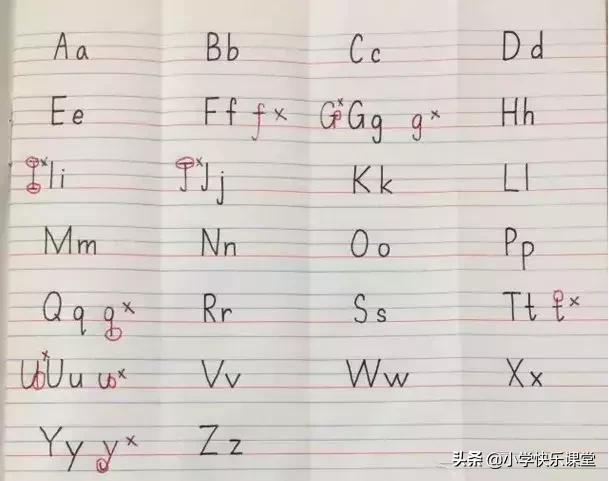 Aa Bb Cc Dd
Ee Ff f × G × Gg g × Hh
I × Ii J × Jj Kk Ll
Mm Nn Oo Pp
Qq q × Rr Ss Tt t ×
U × Uu u × Vv Ww Xx
Yy y × Zz
头条 @小学快乐课堂